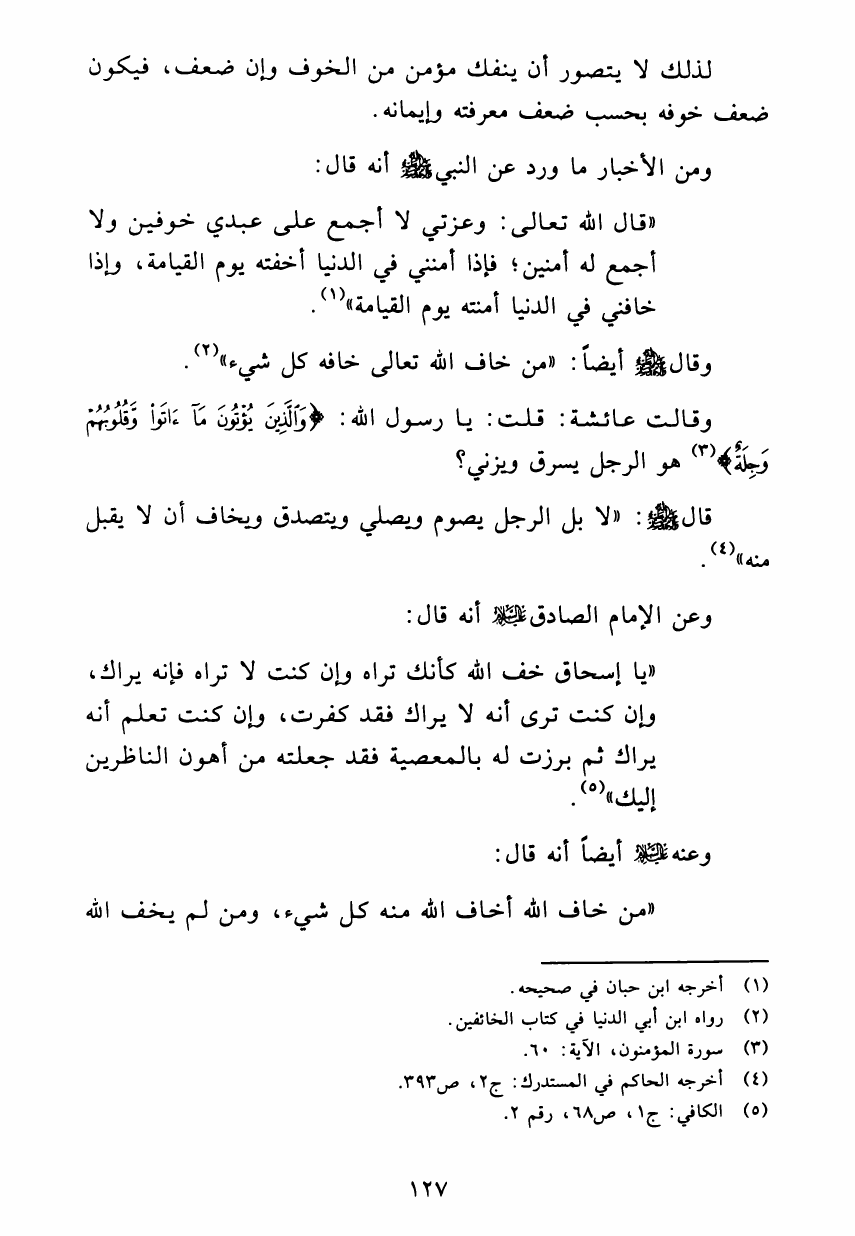 لذلك لا يتصور أن ينفك مؤمن من الخوف وإن ضعف، فيكون
ضعف خوفه بحسب ضعف معرفته وإيمانه.
ومن الأخبار ما ورد عن النبي ﷺ أنه قال:
«قال الله تعالى: وعزتي لا أجمع على عبدي خوفين ولا
أجمع له أمنين؛ فإذا أمنني في الدنيا أخفته يوم القيامة، وإذا
خافني في الدنيا أمنته يوم القيامة»(١).
وقال ﷺ أيضاً: «من خاف الله تعالى خافه كل شيء»(٢).
وقالت عائشة: قلت: يا رسول الله: ﴿وَٱلَّذِينَ يُؤْتُونَ مَآ ءَاتَوا۟ وَّقُلُوبُهُمْ
وَجِلَةٌ﴾(٣) هو الرجل يسرق ويزني؟
قال ﷺ: «لا بل الرجل يصوم ويصلي ويتصدق ويخاف أن لا يقبل
منه»(٤).
وعن الإمام الصادق عليه السلام أنه قال:
«يا إسحاق خف الله كأنك تراه وإن كنت لا تراه فإنه يراك،
وإن كنت ترى أنه لا يراك فقد كفرت، وإن كنت تعلم أنه
يراك ثم برزت له بالمعصية فقد جعلته من أهون الناظرين
إليك»(٥).
وعنه عليه السلام أيضاً أنه قال:
«من خاف الله أخاف الله منه كل شيء، ومن لم يخف الله
(١) أخرجه ابن حبان في صحيحه.
(٢) رواه ابن أبي الدنيا في كتاب الخائفين.
(٣) سورة المؤمنون، الآية: ٦٠.
(٤) أخرجه الحاكم في المستدرك: ج٢، ص٣٩٣.
(٥) الكافي: ج١، ص٦٨، رقم ٢.
١٢٧